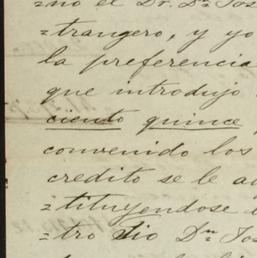 =no el Dr. Dn Jos
=trangero, y yo
la preferencia
que introdujo
ciento quince
convenido los
credito se le a
=tituyendose
=tro tio Dn Jos